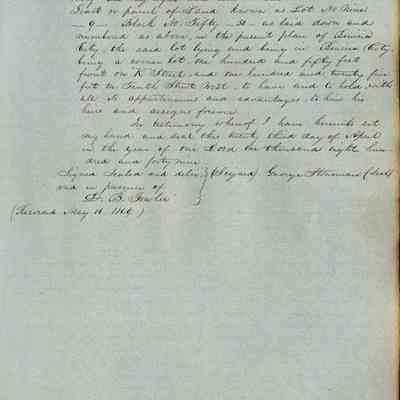 Tract or parcel of Land known as Lot No Nine
— 9 — Block No Fifty — 50 — as laid down and
numbered as above, in the present plan of Benicia
City, the said lot lying and being in Benicia City,
being a corner lot one hundred and fifty feet
front on K Street and one hundred and twenty five
feet on Tenth Street West, to have and to hold with
all its appurtenances and advantages to him his
heirs and assigns forever
In testimony whereof I have hereunto set
my hand and seal this twenty third day of April
in the year of our Lord One thousand eight hun
dred and forty nine
Signed Sealed and deliv } (Signed) George (Seal)
ered in presence of
B. Fowler
(Received May 11